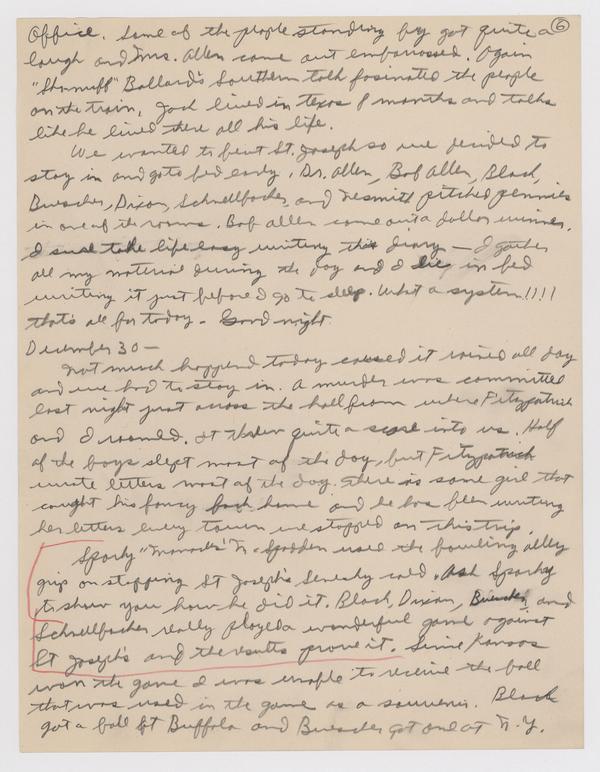 6
Office. Some of the people standing by got quite a
laugh and Mrs. Allen came out embarrossed. Again
Ballard's Southern talk fasinated the people
on the train, Jack lived in texas 8 months and talks
like he lived there all his life.
We wanted to beat St. Joseph so we decided to
stay in and go to bed early. Dr. Allen, Bob Allen, Black,
Buescher, Dixon, Schnellbacher, and Nesmith pitched pennies
in one of the rooms. Bob Allen came out a dollar winner.
I sure take life easy writing this diary — I gather
all my material during the day and I lie in bed
writing it just before I go to sleep. What a system!!!!
that's all for today - Good night
December 30 —
Not much happend today caused it rained all day
and we had to stay in. A murder was committed
last night just across the hall from where Fitzpatrick
and I roomed. It threw quite a scare into us. Half
of the boys slept most of the day, but Fitzpatrick
wrote letters most of the day. there is some girl that
caught his fancy back home and he has been writing
her letters every town we stopped on this trip.
Sparky McSpadden used the bowling alley
grip on stopping St Joseph's Senesky cold. Ask Sparky
to show you how he did it. Black, Dixon, Buescher and
Schnellbacher really played a wonderful game against
St Joseph's and the results prove it. Since Kansas
won the game I was unable to receive the ball
that was used in the game as a souvenir. Black
got a ball at Buffalo and Buescher got one at N.Y.